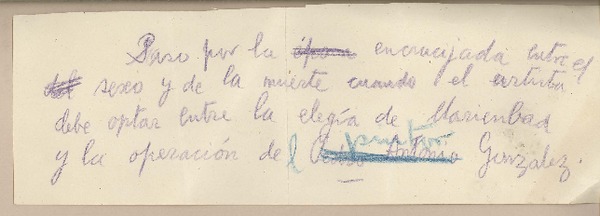 Paso por la época encrucijada entre el
del sexo y de la muerte cuando el artista
debe optar entre la elegía de Marienbad
pintor
y la operación del Antonio Gonzalez.